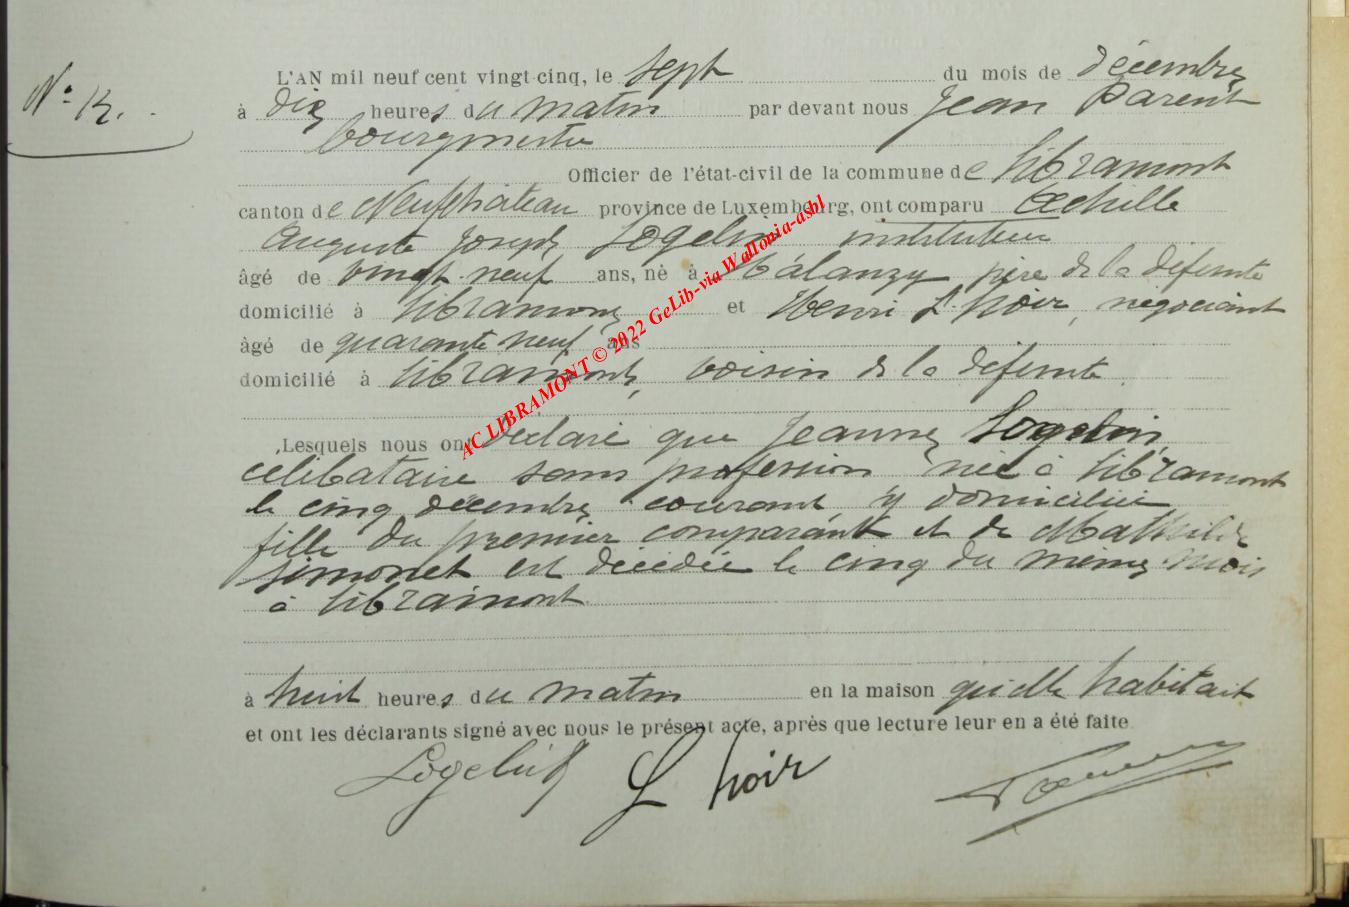 N° 12.
L'AN mil neuf cent vingt-cinq, le sept du mois de décembre
à dix heures du matin par devant nous Jean Parent
bourgmestre
Officier de l'état-civil de la commune de Libramont
canton de Neufchâteau province de Luxembourg, ont comparu Achille
Auguste Joseph Logelin instituteur
âgé de vingt-neuf ans, né à Halanzy père de la défunte
domicilié à Libramont et Henri L'hoir, négociant
âgé de quarante neuf ans
domicilié à Libramont, voisin de la défunte
Lesquels nous ont déclaré que Jeanne Logelin
célibataire sans profession née à Libramont
le cinq décembre courant y domiciliée
fille du premier comparant et de Mathilde
Simonet est décédée le cinq du même mois
à Libramont
à huit heures du matin en la maison qu'elle habitait
et ont les déclarants signé avec nous le présent acte, après que lecture leur en a été faite
Logelin L'hoir
AC LIBRAMONT © 2022 GeLib-via Wallonia-asbl